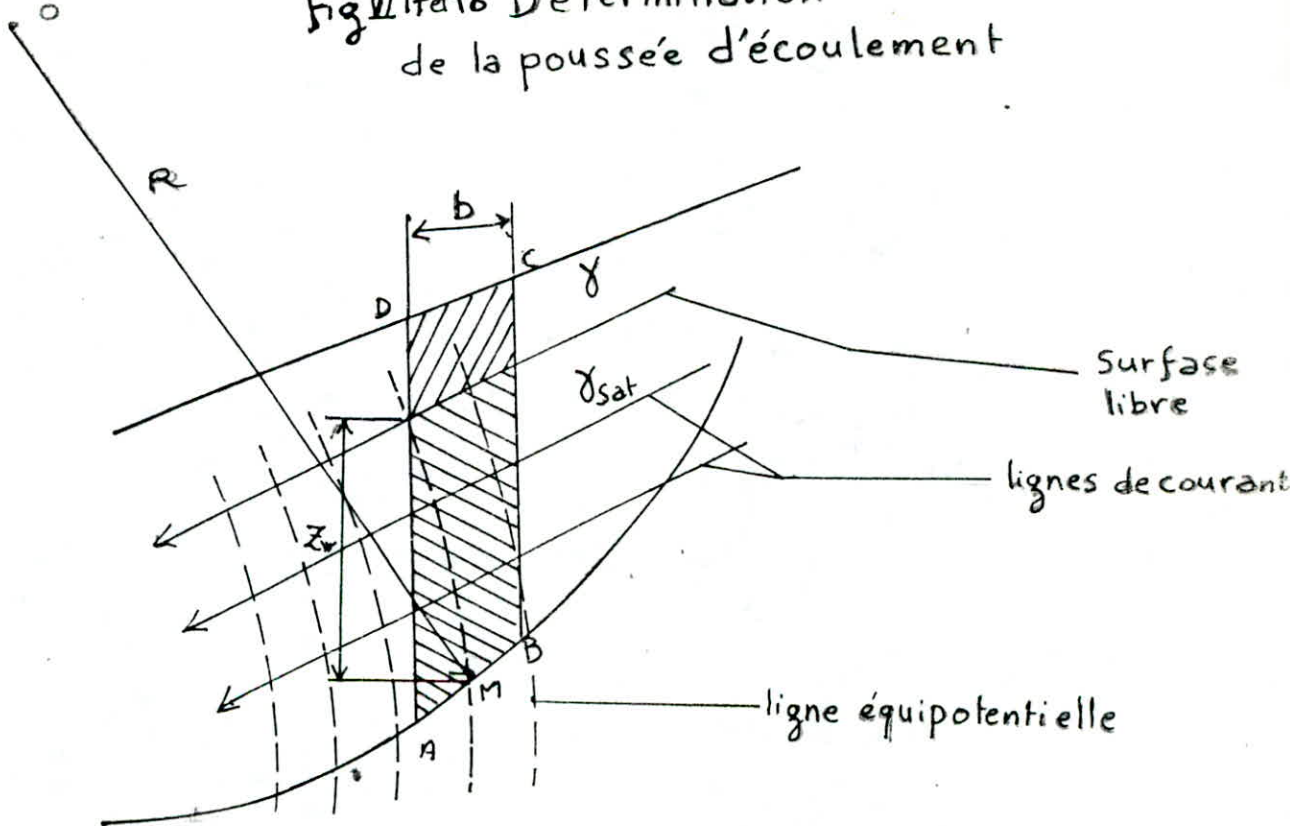 O
Détermination
de la poussée d'écoulement
R
b
C
D
γ
γsat
Surfase
libre
lignes de courant
Zw
B
M
A
ligne équipotentielle